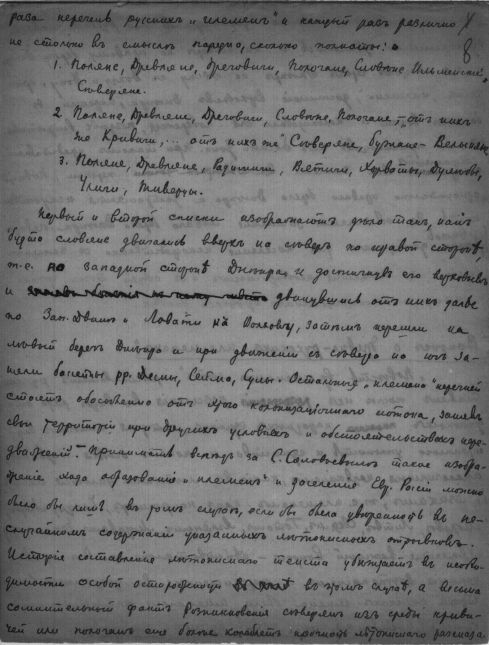 раза перечень русскихъ „племенъ" и каждый разъ различно
8
не столько въ смыслѣ порядка, сколько полноты:
1. Поляне, Древляне, Дреговичи, Полочане, Словѣне Ильменскіе,
Сѣверяне.
2. Поляне, Древляне, Дреговичи, Словѣне, Полочане, „отъ нихъ
же Кривичи,... отъ нихъ же" Сѣверяне, Бужане - Велыняне
3. Поляне, Древляне, Радимичи, Вятичи, Хорваты, Дулѣбы,
Уличи, Тиверцы.
Первый и второй списки изображаютъ дѣло такъ, какъ
будто словене двигались вверхъ на сѣверъ по правой сторонѣ,
т.-е. по западной сторонѣ Днѣпра, и достигнувъ его верховьевъ
и двинувшись отъ нихъ далѣе
по Зап. Двинѣ и Ловати на Волховъ, затѣмъ перешли на
лѣвый берегъ Днѣпра и при движеніи съ сѣвера на югъ за-
няли бассейны рр. Десны, Сейма, Сулы. Остальныя „племена" перечней
стоятъ обособленно отъ этого колонизаціоннаго потока, занявъ
свои территоріи при другихъ условіяхъ и обстоятельствахъ
движеній. Принимать вслѣдъ за С. Соловьевымъ такое изобра-
женіе хода образованія „племенъ" и заселенія Евр. Россіи можно
было бы лишь въ томъ случаѣ, если бы была увѣренность въ не-
случайномъ содержаніи указанныхъ лѣтописныхъ отрывковъ.
Исторія составленія лѣтописнаго текста убѣждаетъ въ необхо-
димости особой осторожности въ этомъ случаѣ, а весьма
сомнительный фактъ сѣверянъ изъ среды криви-
чей или полочанъ еще болѣе колеблетъ прочность лѣтописнаго разсказа.